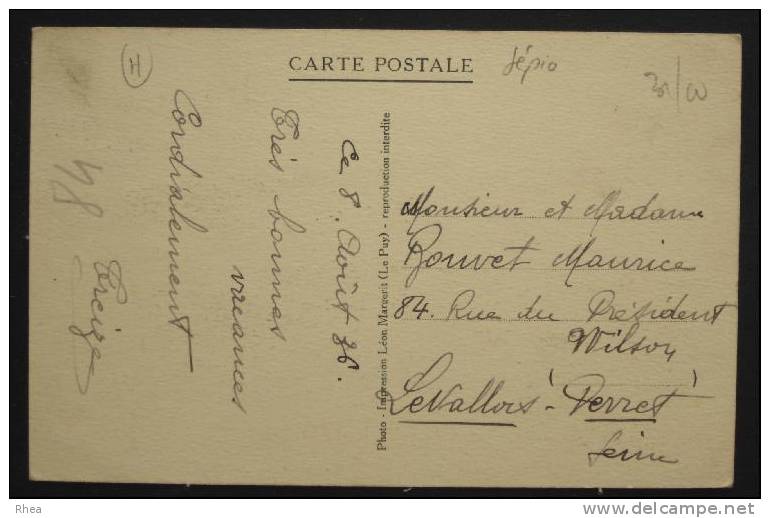 CARTE POSTALE
sépia
Ce 8 Août 36.
Très bonnes
vacances
Cordialement
Photo - Impression Léon Margerit (Le Puy) - reproduction interdite
Monsieur et Madame
Bouvet Maurice
84. Rue du Président
Wilson
Levallois - Perret
Seine
Rhea
delcampe.net